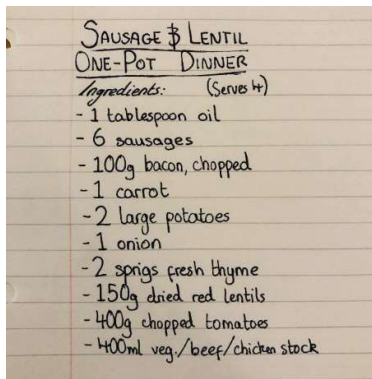 SAUSAGE & LENTIL
ONE-POT DINNER
Ingredients: (Serves 4)
- 1 tablespoon oil
- 6 sausages
- 100g bacon, chopped
- 1 carrot
- 2 large potatoes
- 1 onion
- 2 sprigs fresh thyme
- 150g dried red lentils
- 400g chopped tomatoes
- 400ml veg./beef/chicken stock